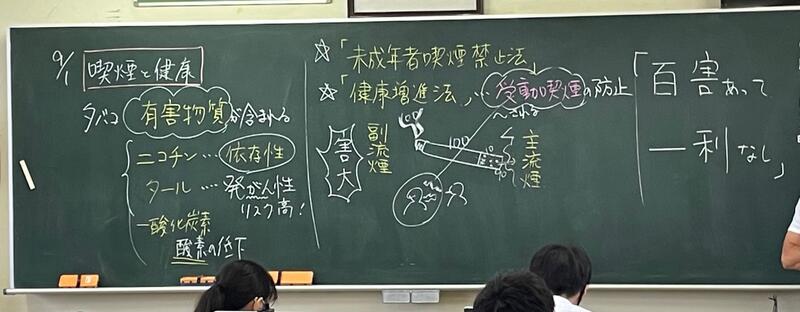 9/1
喫煙と健康
タバコ 有害物質が含まれる
ニコチン…依存性
タール…発がん性
リスク高!
一酸化炭素
酸素の低下
☆「未成年者喫煙禁止法」
☆「健康増進法」…受動喫煙の防止
〜される
害大
副流煙
100
100
主流煙
「百害あって
一利なし」